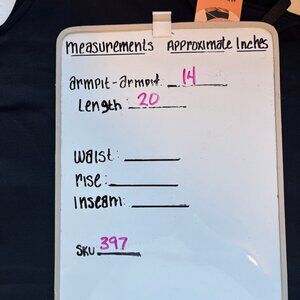 Measurements Approximate Inches
armpit-armpit: 14
Length: 20
Waist:
rise:
Inseam:
SKU 397